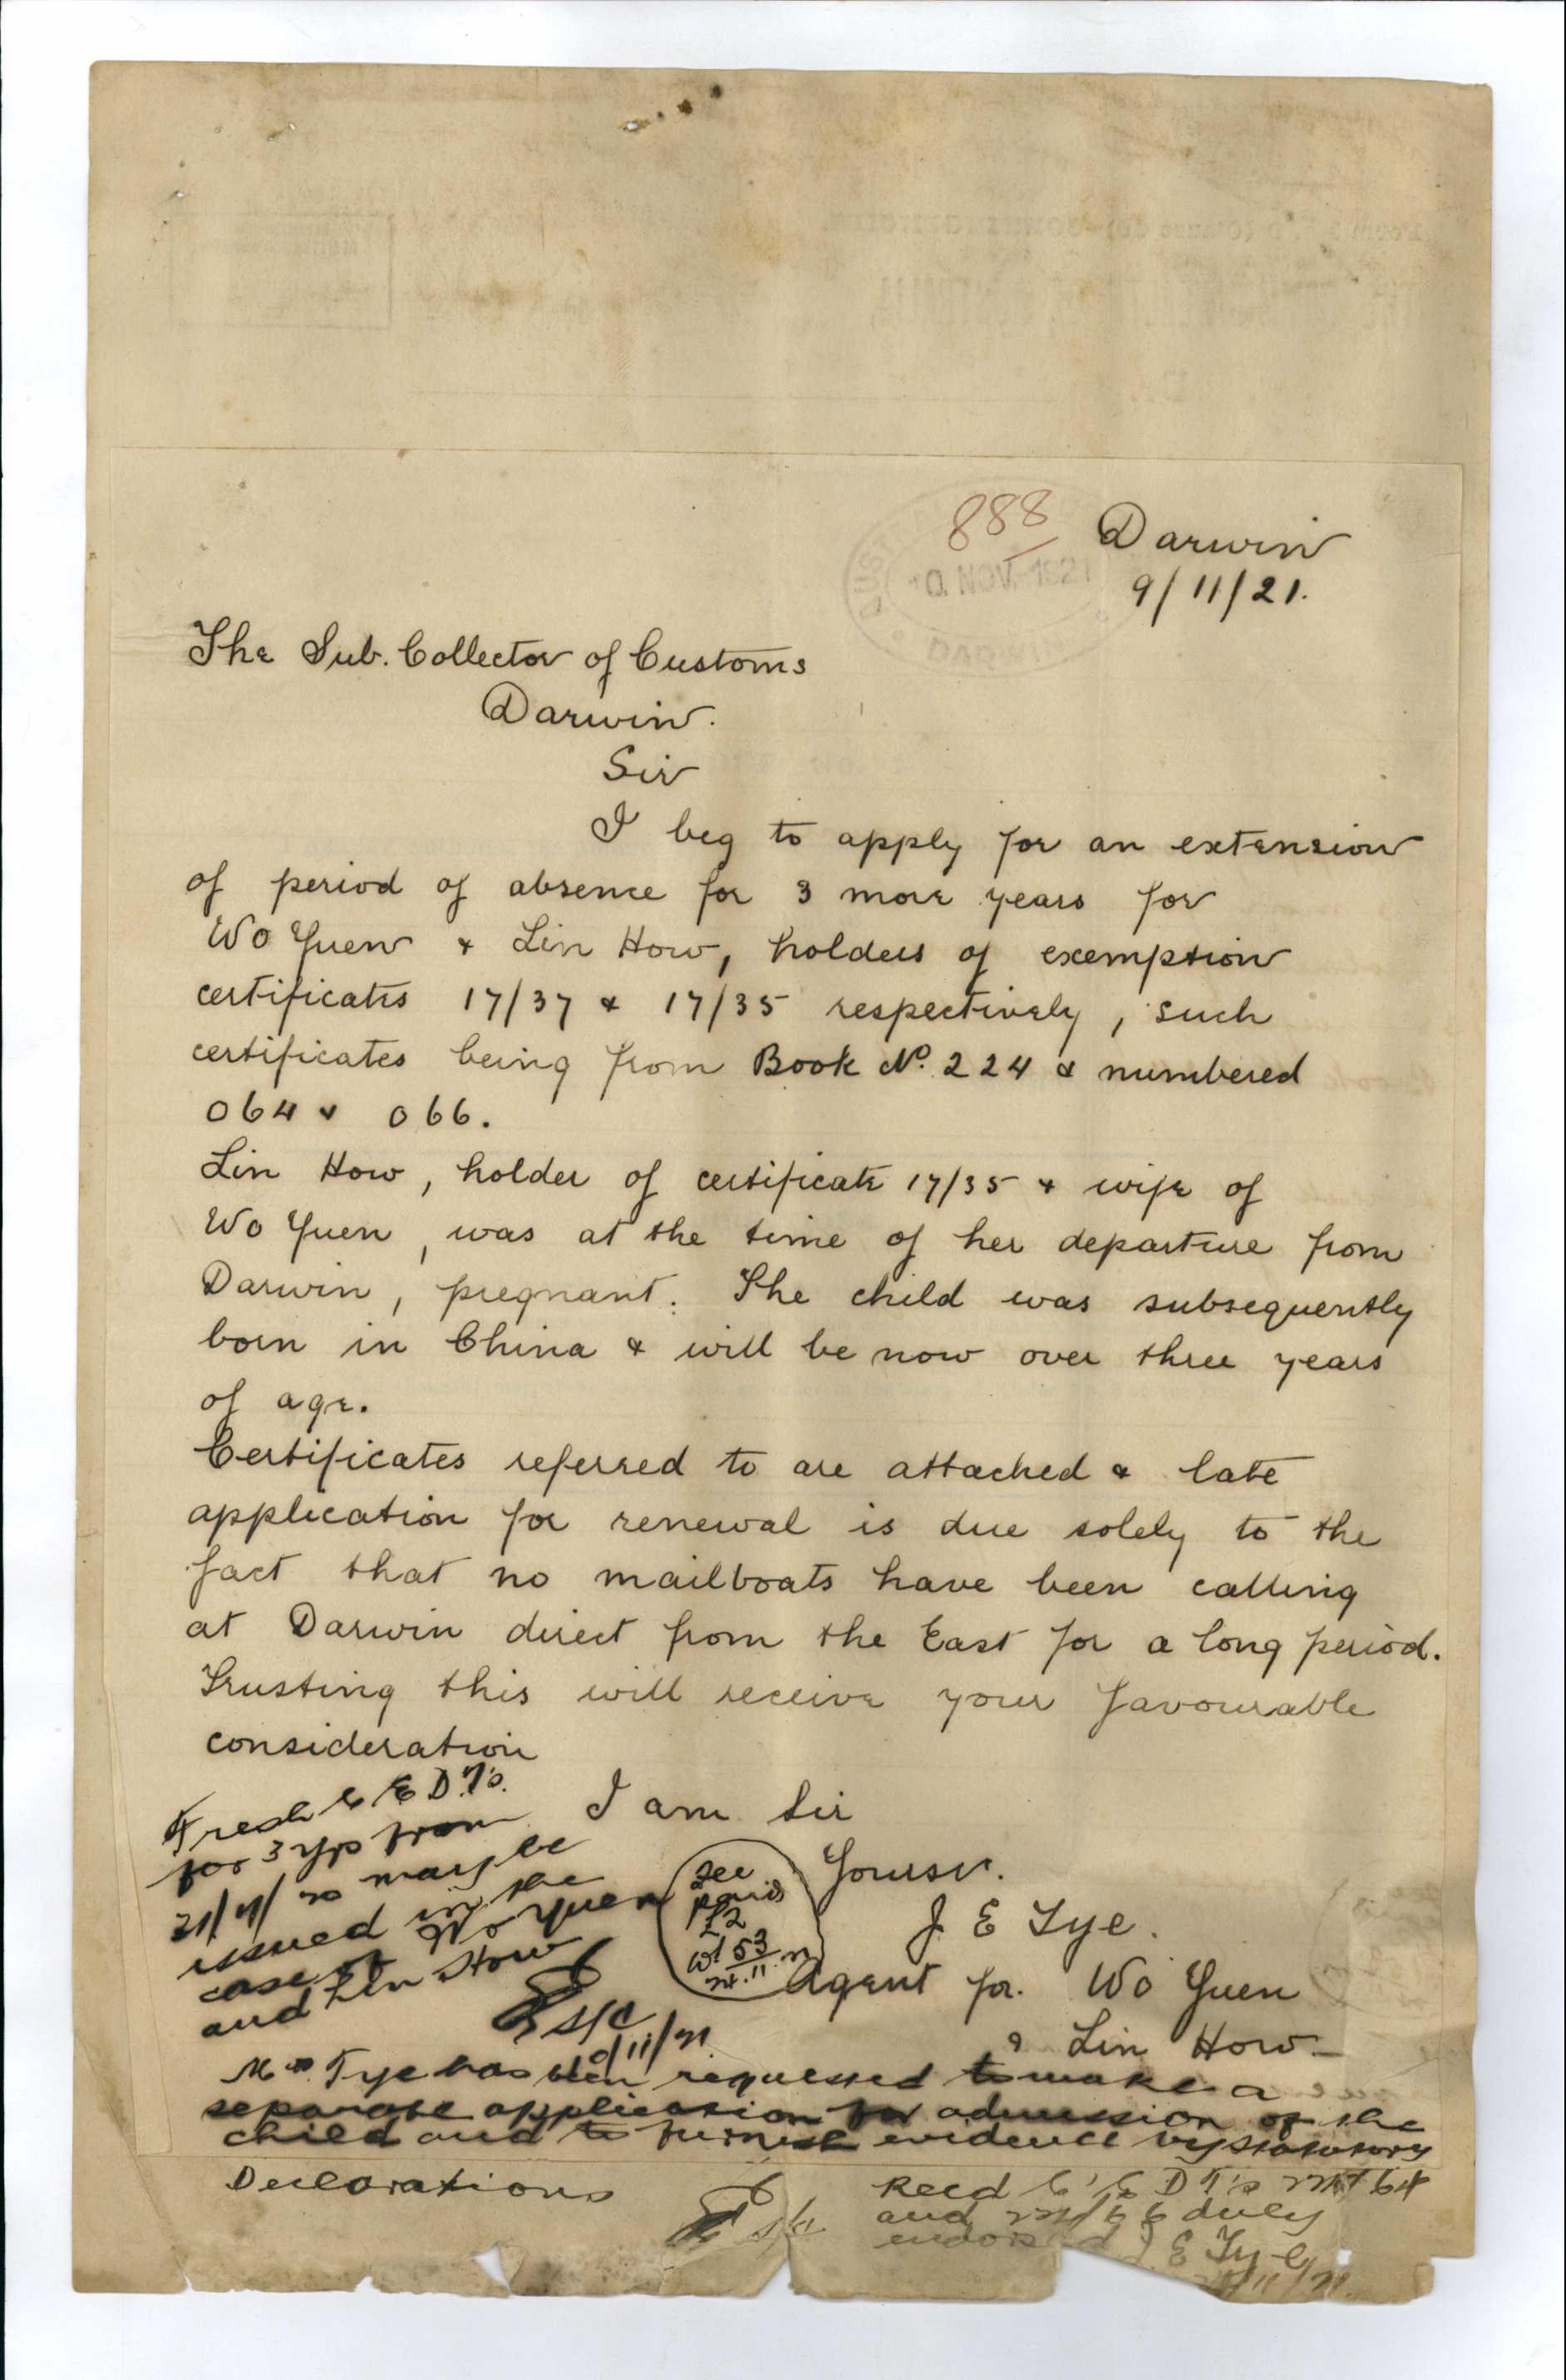 888
Darwin
10 NOV. 1921
9/11/21.
The Sub. Collector of Customs
Darwin.
Sir
I beg to apply for an extension
of period of absence for 3 more years for
Wo Yuen & Lin How, holders of exemption
certificates 17/37 & 17/35 respectively, such
certificates being from Book No. 224 & numbered
064 & 066.
Lin How, holder of certificate 17/35 & wife of
Wo Yuen, was at the time of her departure from
Darwin, pregnant. The child was subsequently
born in China & will be now over three years
of age.
Certificates referred to are attached & late
application for renewal is due solely to the
fact that no mailboats have been calling
at Darwin direct from the East for a long period.
Trusting this will receive your favourable
consideration
I am Sir
Yours
J E Tye.
Agent for Wo Yuen
& Lin How
Fresh C E D T's.
for 3 yrs from
may be
issued in the
case of Wo Yuen
and Lin How
S/C
/11/21
see
£2
53
Tye has been requested to make a
separate application for admission of the
child and to furnish evidence by statutory
Declarations
S/C
Recd C E D T's 224/64
and 224/66 duly
J E Tye
/11/21.